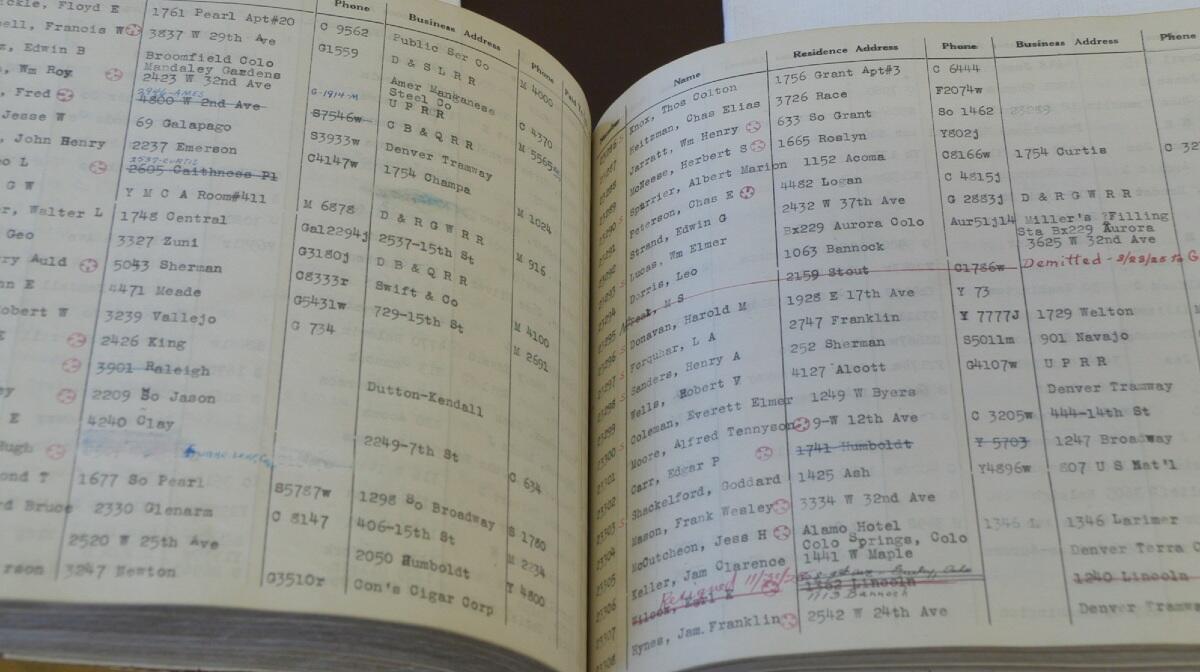 Phone Business Address Phone
ckle, Floyd E 1761 Pearl Apt#20 C 9562 Public Ser Co M 4000
ell, Francis W 3837 W 29th Ave G1559 D & S L R R
, Edwin B Broomfield Colo
Mandaley Gardens Amer Manganese
, Wm Roy 2423 W 32nd Ave Steel Co C 4370
, Fred 4800 W 2nd Ave G-1914-M S7546w U P R R M 5565
Jesse W 69 Galapago S3933w C B & Q R R
, John Henry 2237 Emerson C4147w Denver Tramway
o L 2537-CURTIS 2605 Caithness Pl 1754 Champa M 1024
G W Y M C A Room#411 M 6878
r, Walter L 1748 Central Gal2294j D & R G W R R M 916
Geo 3327 Zuni G3180j 2537-15th St
ry Auld 5043 Sherman C8333r D B & Q R R
n E 4471 Meade G5431w Swift & Co M 4100
obert W 3239 Vallejo G 734 729-15th St M 2691
E 2426 King
3901 Raleigh
ey 2209 So Jason Dutton-Kendall
E 4240 Clay
ugh 2249-7th St C 634
ond T 1677 So Pearl S5787w 1298 So Broadway S 1780
rd Bruce 2330 Glenarm C 8147 406-15th St M 2234
2520 W 25th Ave 2050 Humboldt Y 4800
rson 3247 Newton G3510r Con's Cigar Corp
Name Residence Address Phone Business Address Phone
Knox, Thos Colton 1756 Grant Apt#3 C 6444
Keitzman, Chas Elias 3726 Race F2074w
Jarratt, Wm Henry 633 So Grant So 1462
McNeese, Herbert S 1665 Roslyn Y802j
Sparrier, Albert Marion 1152 Acoma C8166w 1754 Curtis
Peterson, Chas E 4482 Logan C 4815j
Strand, Edwin G 2432 W 37th Ave G 2883j D & R G W R R
Lucas, Wm Elmer Bx229 Aurora Colo Aur51j14 Miller's Filling
Sta Bx229 Aurora
Dorris, Leo 1063 Bannock 3625 W 32nd Ave
M S 2159 Stout C1786w Demitted - 3/23/25 to G
Donavan, Harold M 1928 E 17th Ave Y 73
Forquhar, L A 2747 Franklin Y 7777J 1729 Welton
Sanders, Henry A 252 Sherman S5011m 901 Navajo
Wells, Robert V 4127 Alcott G4107w U P R R
Coleman, Everett Elmer 1249 W Byers Denver Tramway
Moore, Alfred Tennyson 9-W 12th Ave C 3205w 444-14th St
Carr, Edgar P 1741 Humboldt Y 5703 1247 Broadway
Shackelford, Goddard 1425 Ash Y4896w 807 U S Nat'l
Mason, Frank Wesley 3334 W 32nd Ave
McCutcheon, Jess H Alamo Hotel 1346 Larimer
Colo Springs, Colo
Keller, Jam Clarence 1441 W Maple Denver Terra C
Resigned 1362 Lincoln 1240 Lincoln
1713 Bannock
Hynes, Jam. Franklin 2542 W 24th Ave Denver Tramwa